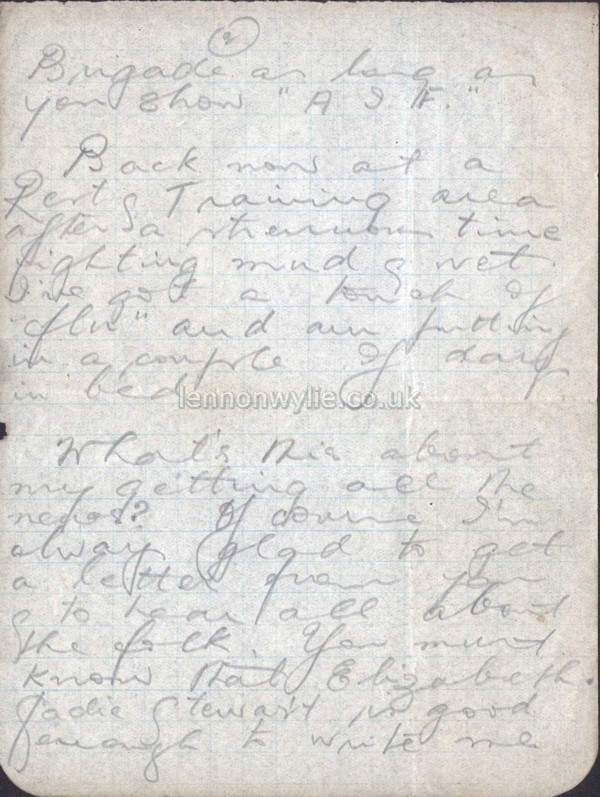 2
Brigade as long as
you show "A I F."
Back now at a
Rest & Training area
after a strenuous time
fighting mud & wet.
I've got a touch of
"flu" and am putting
in a couple of days
in bed.
lennonwylie.co.uk
What's this about
my getting all the
news? Of course I'm
always glad to get
a letter from you
& to hear all about
the folk. You must
know that Elizabeth
Sadie Stewart is good
enough to write me